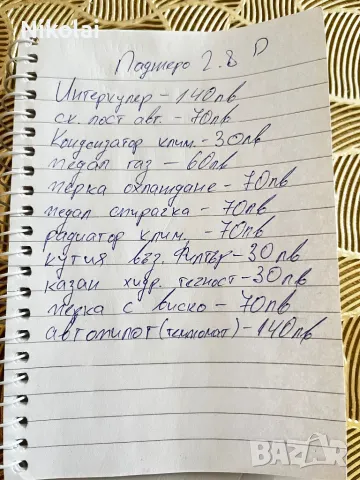 Nikolai
Паджеро 2.8 D
Интеркулер - 140лв
ск. лост авт. - 70лв.
Кондензатор клим. - 30лв
педал газ - 60лв
перка охлаждане - 70лв
педал спирачка - 70лв
радиатор клим. - 70лв
кутия въз. Филтър - 30лв
казан хидр. течност - 30лв
перка с виско - 70лв
автопилот (темпомат) - 140лв
BAZAR